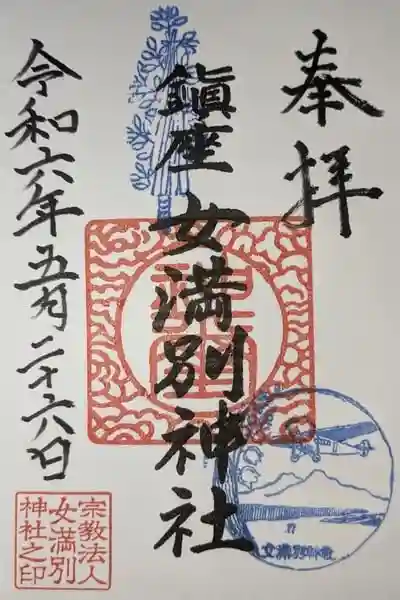 奉拝
鎮座 女満別神社
令和六年五月二十六日
宗教法人
女満別
神社之印
女満別神社